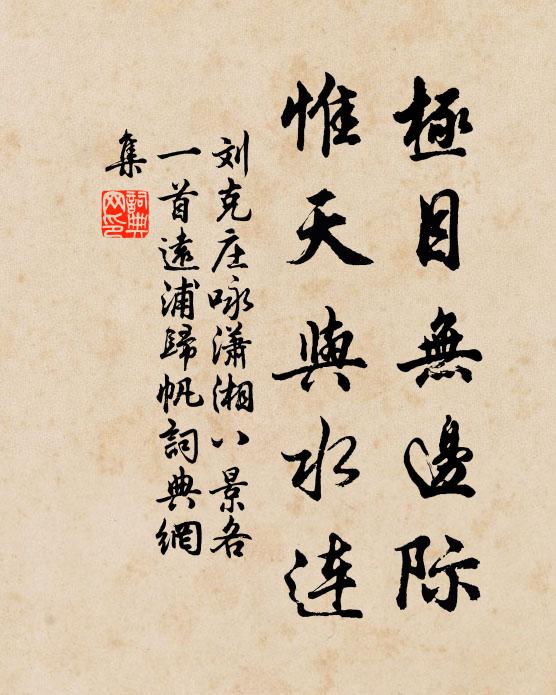 極目無邊际
惟天與水连
刘克庄咏瀟湘八景各
一首遠浦歸帆詞典網
集
詞典
网印